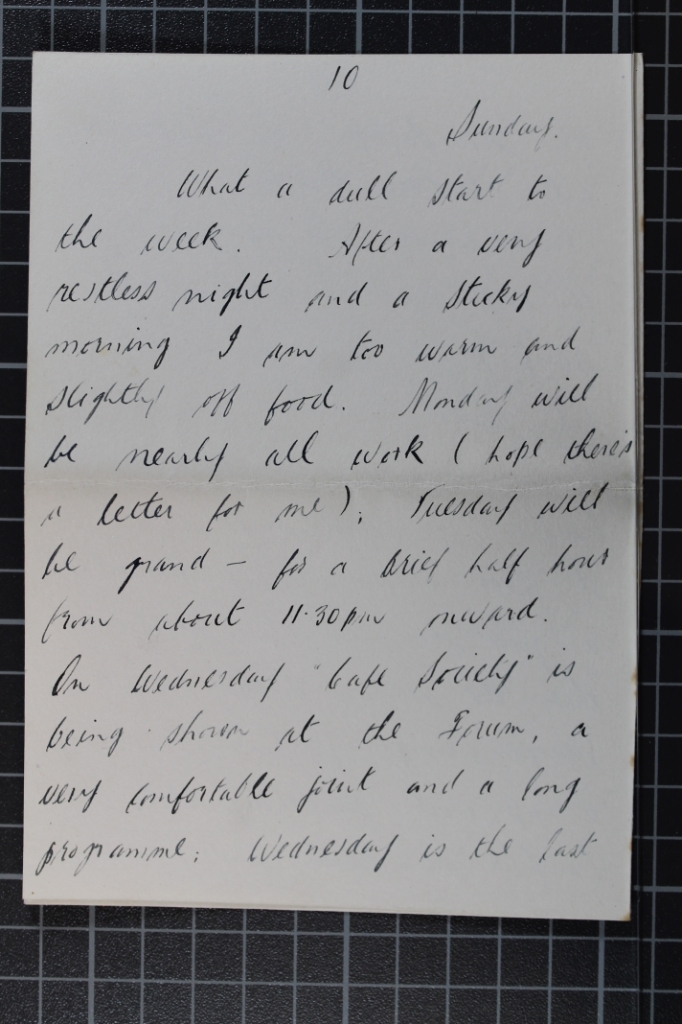 10
Sunday.
What a dull start to
the week. After a very
restless night and a sticky
morning I am too warm and
slightly off food. Monday will
be nearly all work (hope there's
a letter for me); Tuesday will
be grand – for a brief half hour
from about 11.30pm onward.
On Wednesday "Cafe Society" is
being shown at the Forum, a
very comfortable joint and a long
programme; Wednesday is the last